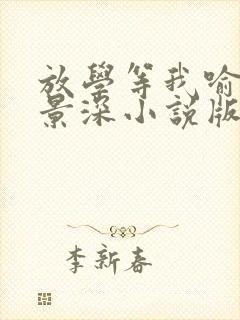 放學等我喻
景深小説版
李新春